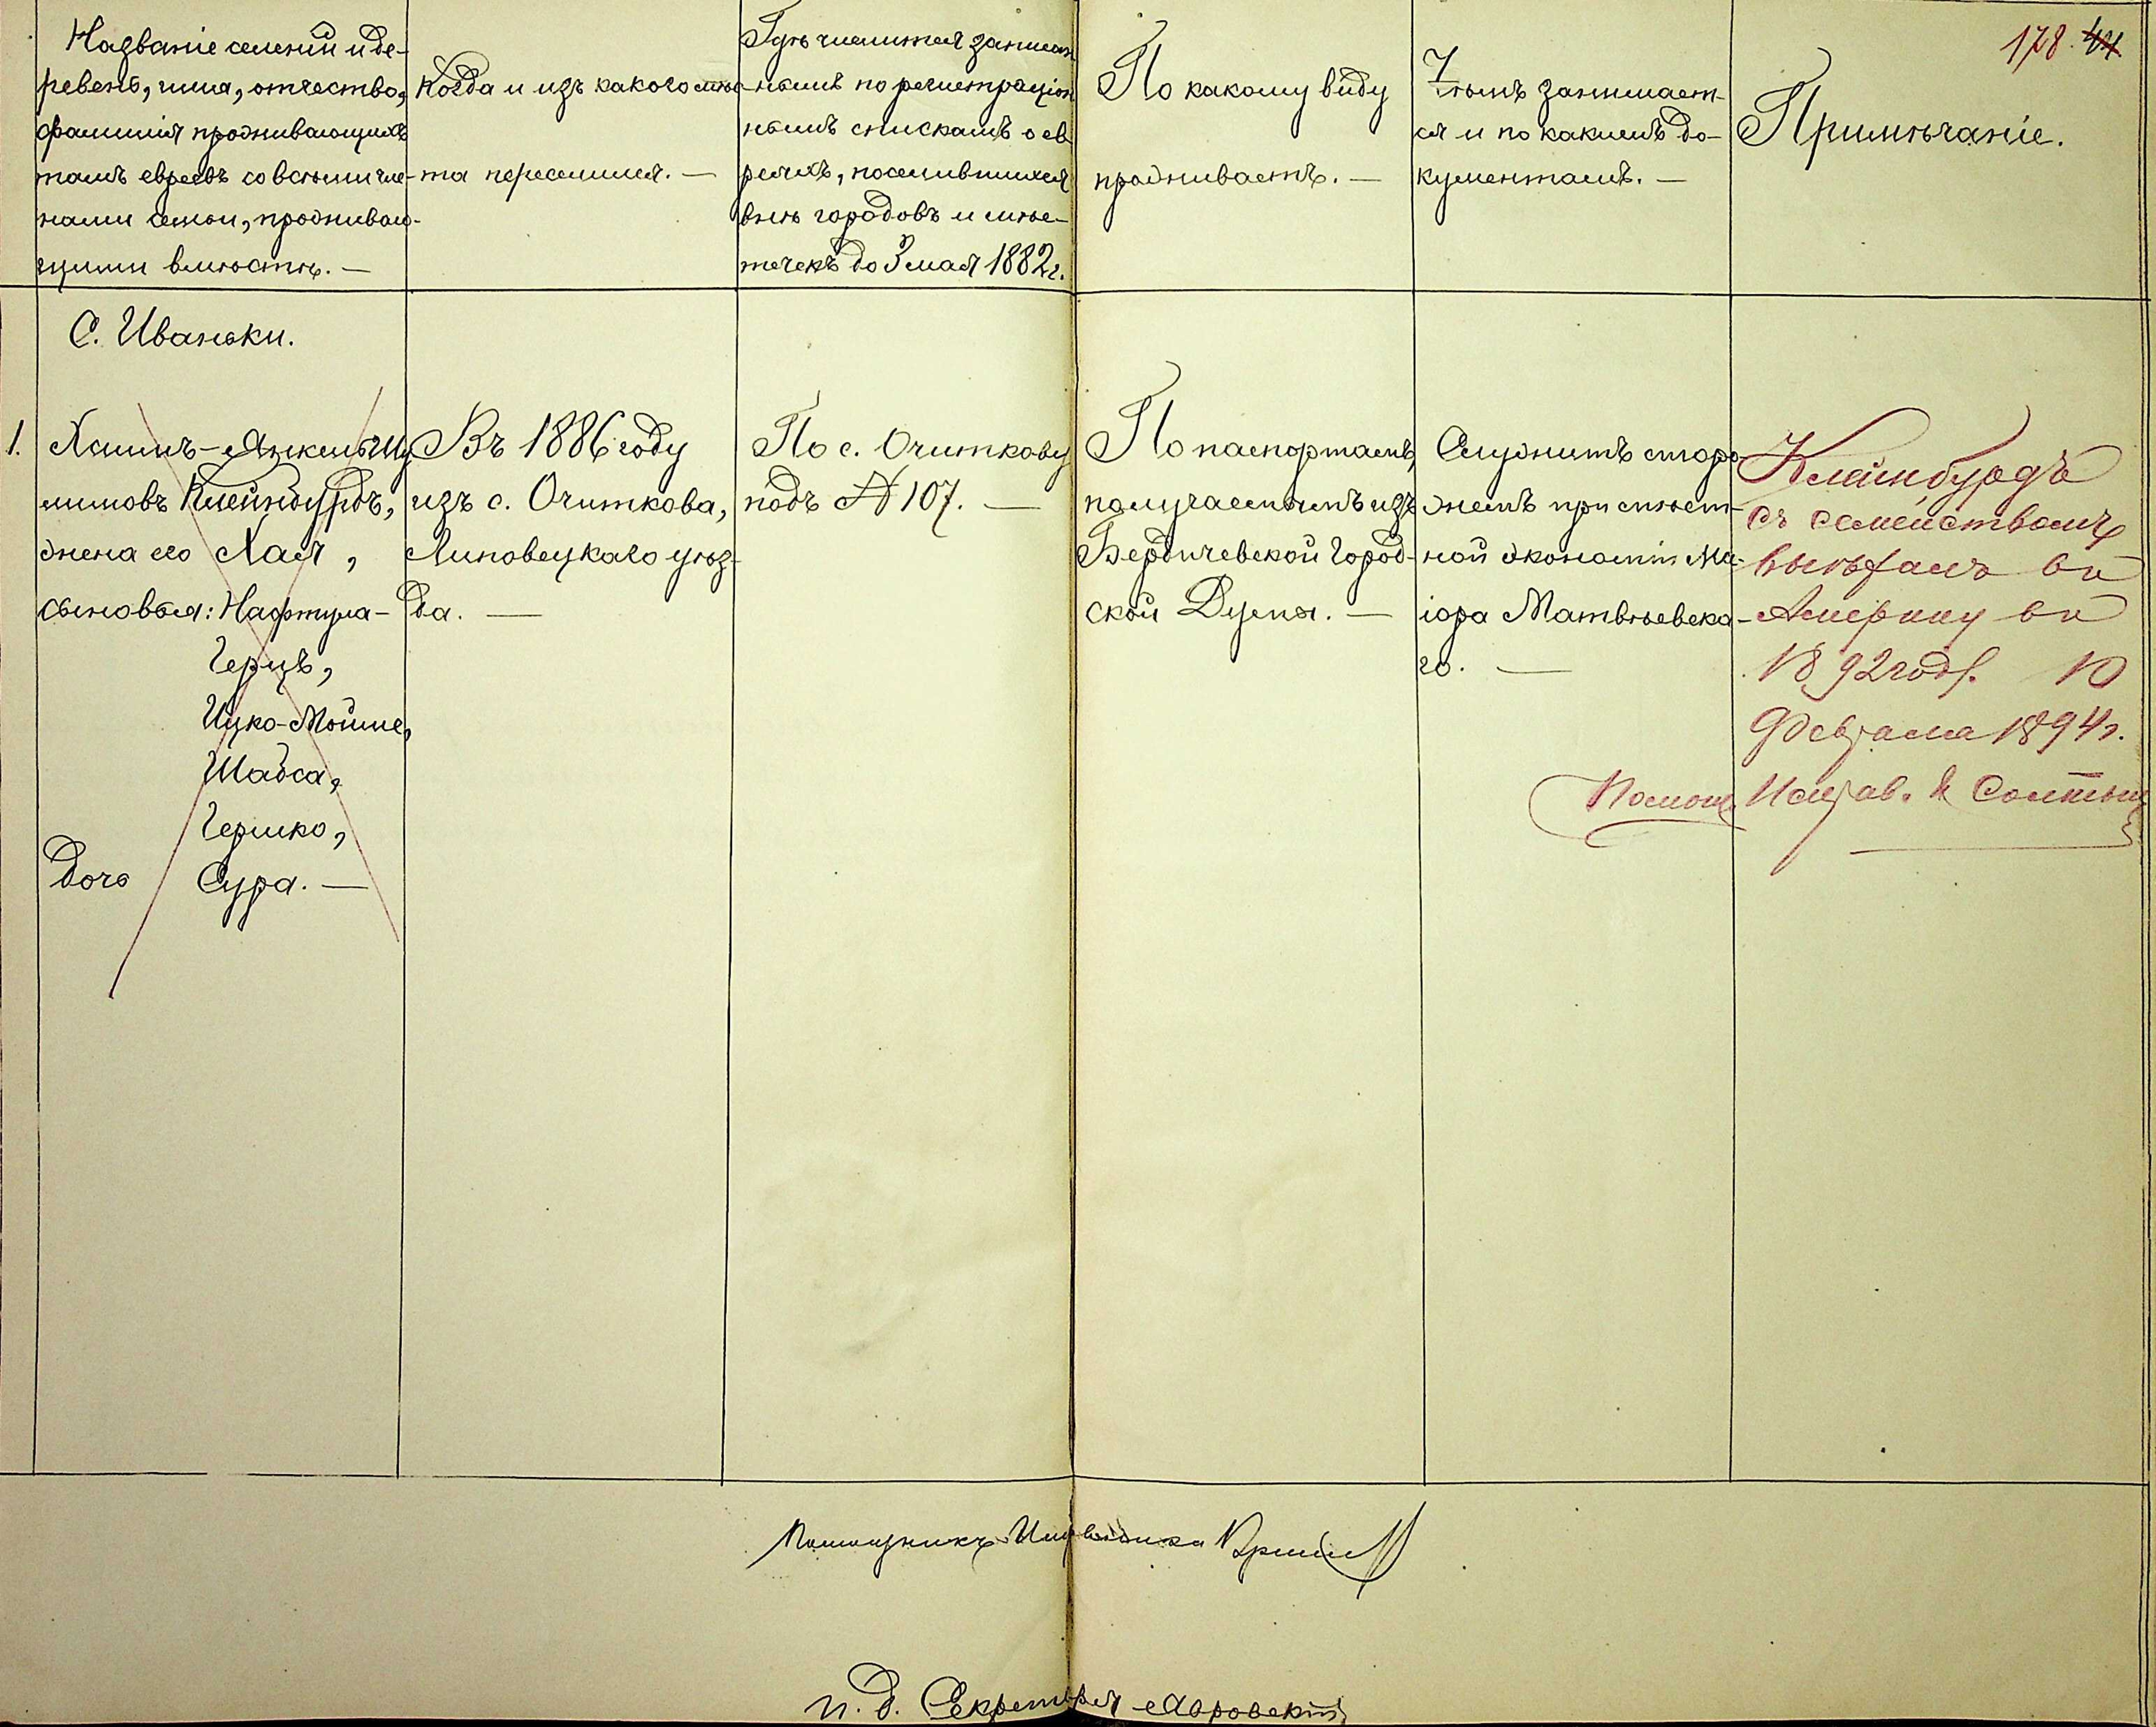 178. 44
Названіе селеній и де-
ревень, имя, отчество,
фамилія проживающихъ
тамъ евреевъ со всѣми чле-
нами семьи, проживаю-
щими вмѣстѣ. —
Когда и изъ какого мѣс-
та переселился. —
Гдѣ числится записан-
нымъ по регистраціон
нымъ спискамъ о ев
реяхъ, поселившихся
внѣ городовъ и мѣс-
течекъ до 3 мая 1882 г.
По какому виду
проживаетъ. —
Чѣмъ занимает-
ся и по какимъ до-
кументамъ. —
Примѣчаніе.
С. Иваньки.
1. Хаимъ-Янкель Шу
лимовъ Клейнбурдъ,
жена его Хая,
сыновья: Нафтула-
Герцъ,
Ицко-Мойше,
Шабса,
Гершко,
Дочь Сура. —
Въ 1886 году
изъ с. Очиткова,
Липовецкаго уѣз-
да. —
По с. Очиткову
подъ № 107. —
По паспортамъ,
получаемымъ изъ
Бердичевской Город-
ской Думы. —
Служитъ сторо-
жемъ при мѣст-
ной экономіи Ма-
іора Матвѣевска-
го. —
Клейнбурдъ
съ семействомъ
выѣхалъ въ
Америку въ
1892 году. 10
Февраля 1894 г.
Помощ. Исправ.
Помощникъ Исправника
И. д. Секретаря